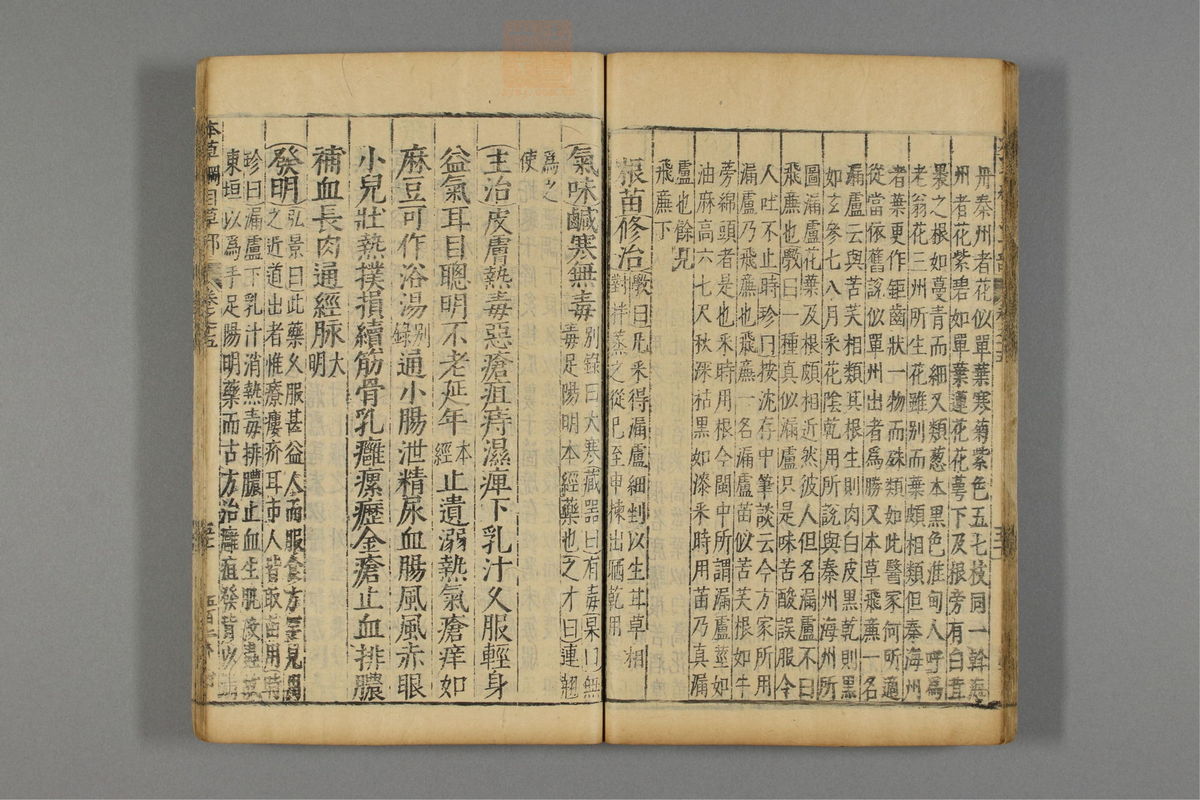 丹秦州者花似單葉寒菊紫色五七枝同一幹海
州者花紫碧如單葉蓮花花萼下及根旁有白茸
裹之根如蔓青而細又類葱本黑色淮甸人呼爲
老翁花三州所生花雖别而葉頗相類但秦海州
者葉更作鋸齒狀一物而殊類如此醫家何所適
從當依舊說似單州出者爲勝又本草飛蘪一名
漏盧云與苦芺相類其根生則肉白皮黑乾則黑
如玄參七八月采花陰乾用所說與秦州海州所
圖漏盧花葉及根頗相近然彼人但名漏盧不曰
飛蘪也斆曰一種真似漏盧只是味苦酸誤服令
人吐不止時珍曰按沈存中筆談云今方家所用
漏盧乃飛蘪也飛蘪一名漏盧苗似苦芺根如牛
蒡綿頭者是也采時用根今閩中所謂漏盧莖如
油麻高六七尺秋深枯黑如漆采時用苗乃真漏
盧也餘見
飛蘪下
根苗修治斆曰凡采得漏盧細剉以生甘草相
對拌蒸之從巳至申揀出晒乾用
氣味鹹寒無毒别錄曰大寒藏器曰有毒杲曰無
毒足陽明本經藥也之才曰連翹
爲之
使
主治皮膚熱毒惡瘡疽痔濕痺下乳汁久服輕身
益氣耳目聰明不老延年本經止遺溺熱氣瘡痒如
麻豆可作浴湯别錄通小腸泄精尿血腸風風赤眼
小兒壯熱撲損續筋骨乳癰瘰癧金瘡止血排膿
補血長肉通經脉大明
發明弘景曰此藥久服甚益人而服食方罕見用
之近道出者惟療瘻疥耳市人皆取苗用時
珍曰漏盧下乳汁消熱毒排膿止血生肌殺蟲故
東垣以爲手足陽明藥而古方治癰疽發背以漏
本草綱目草部
卷之十五